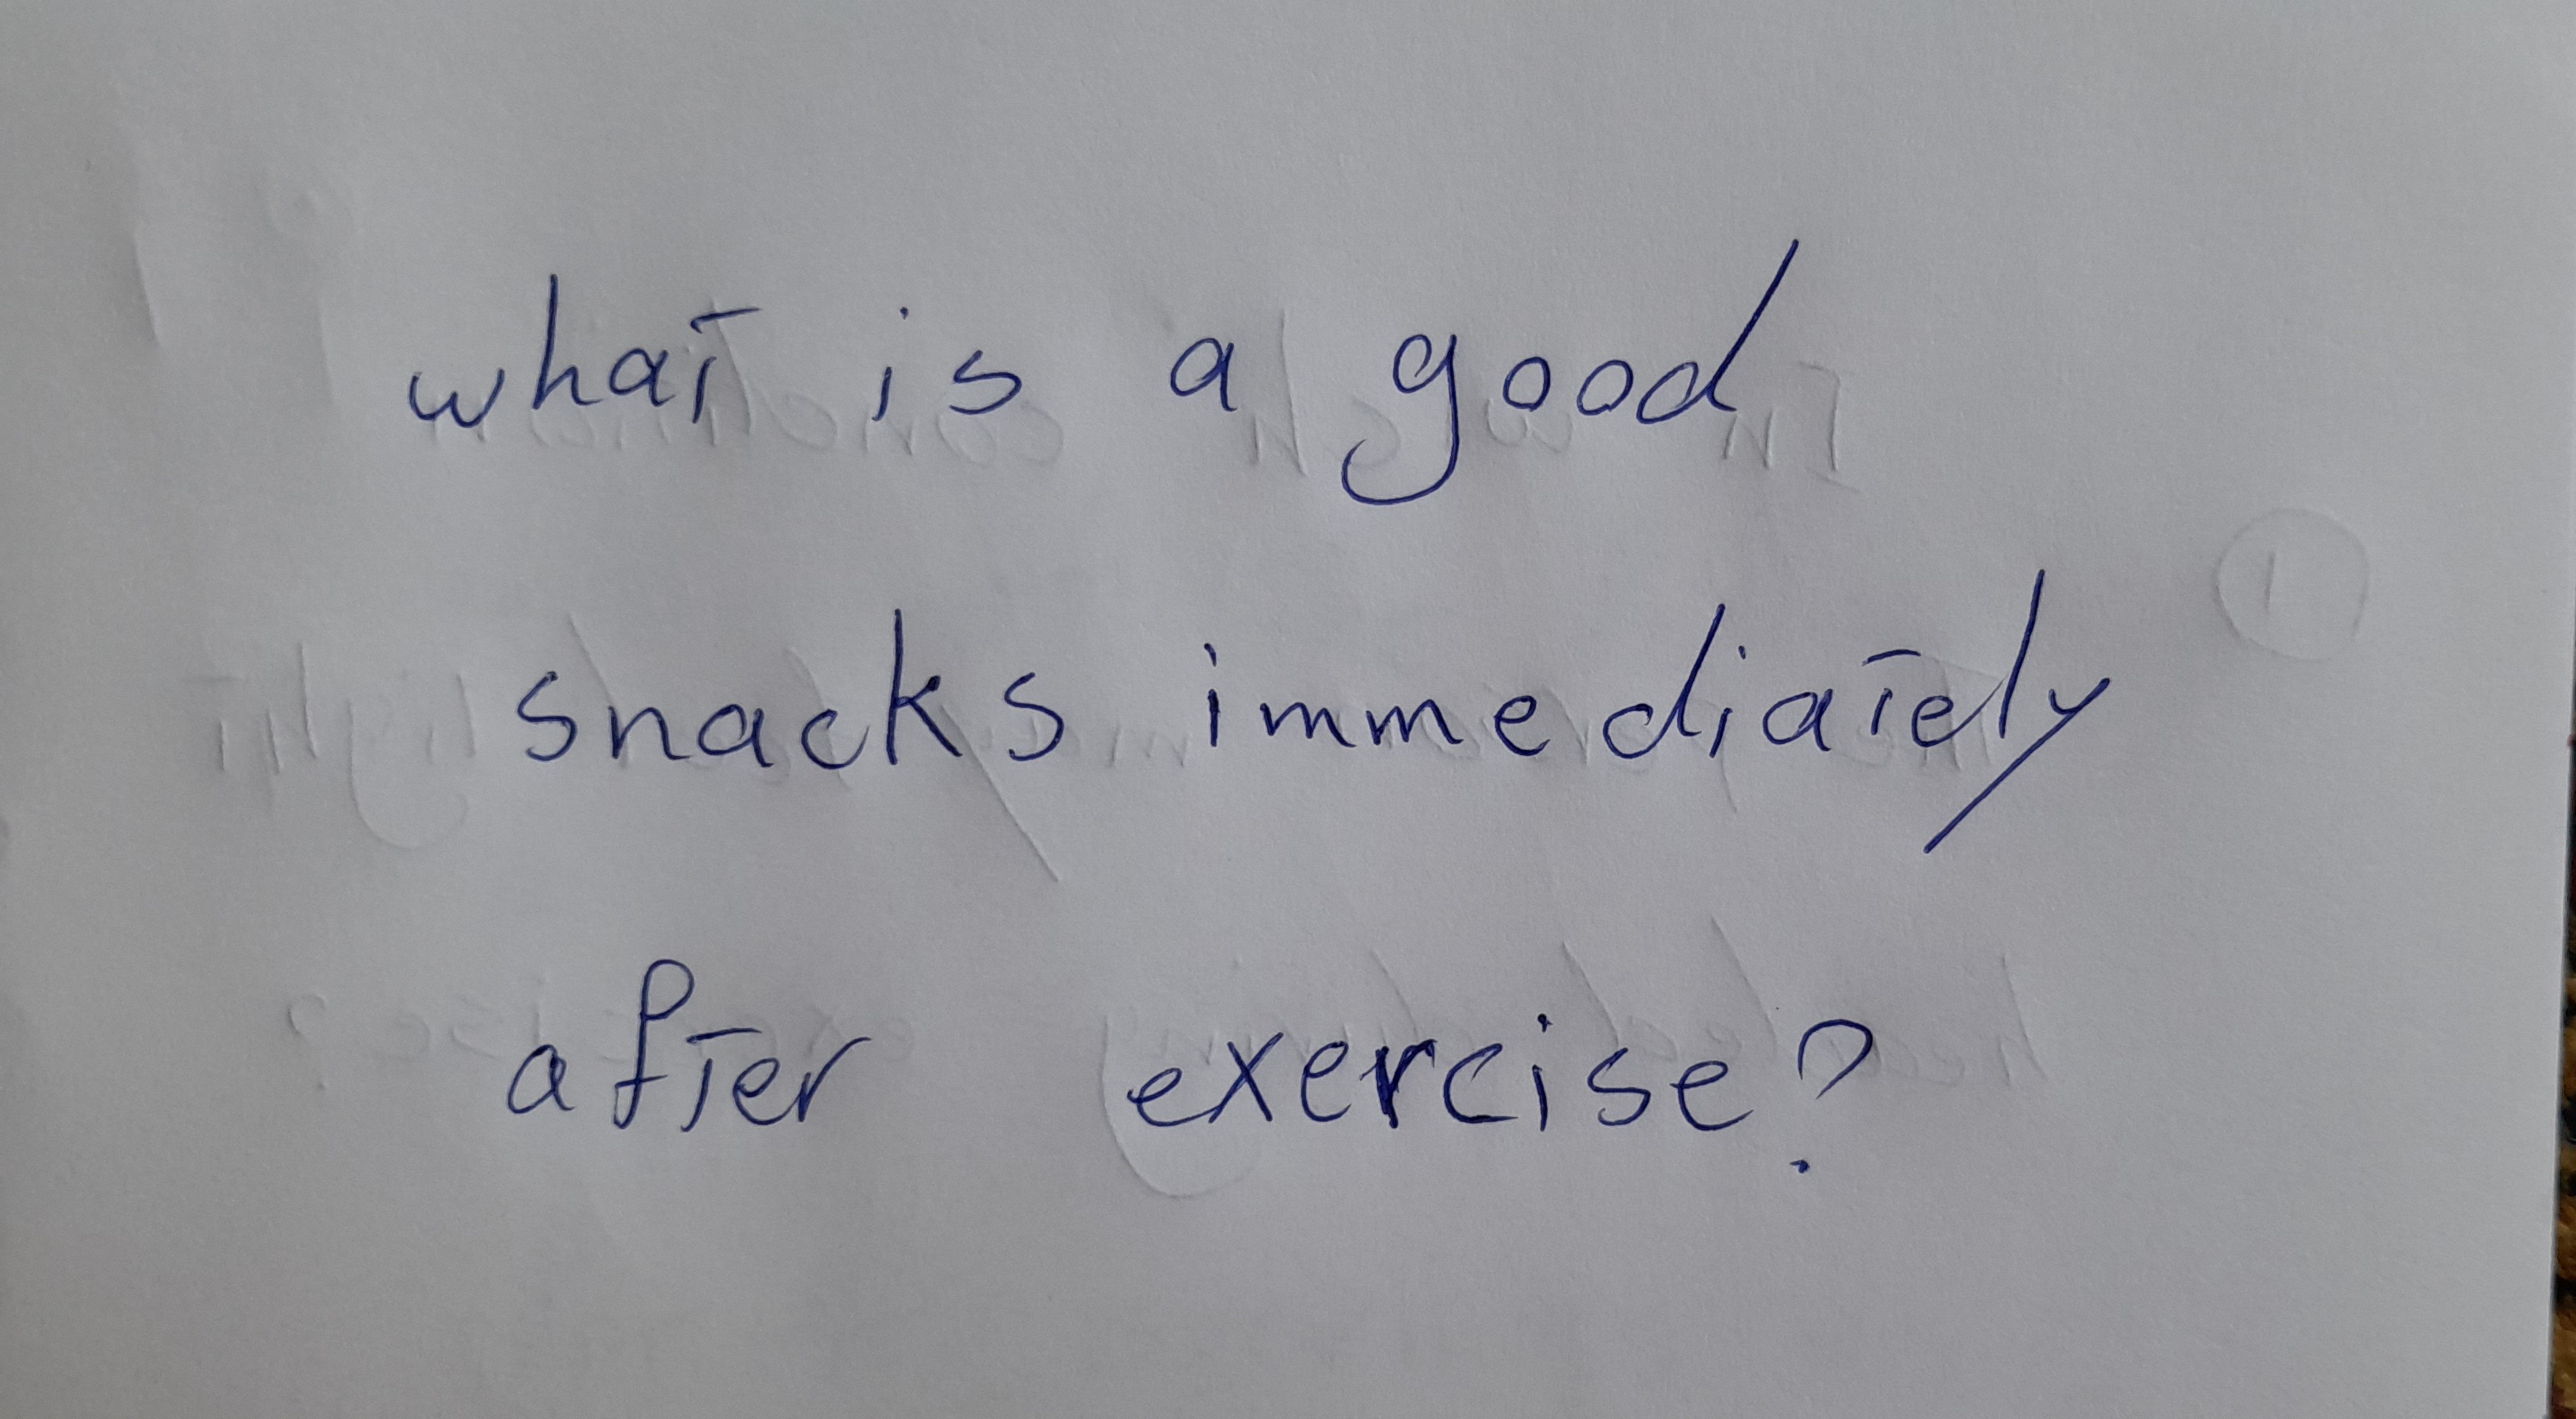 what is a good
snacks immediately
after exercise?